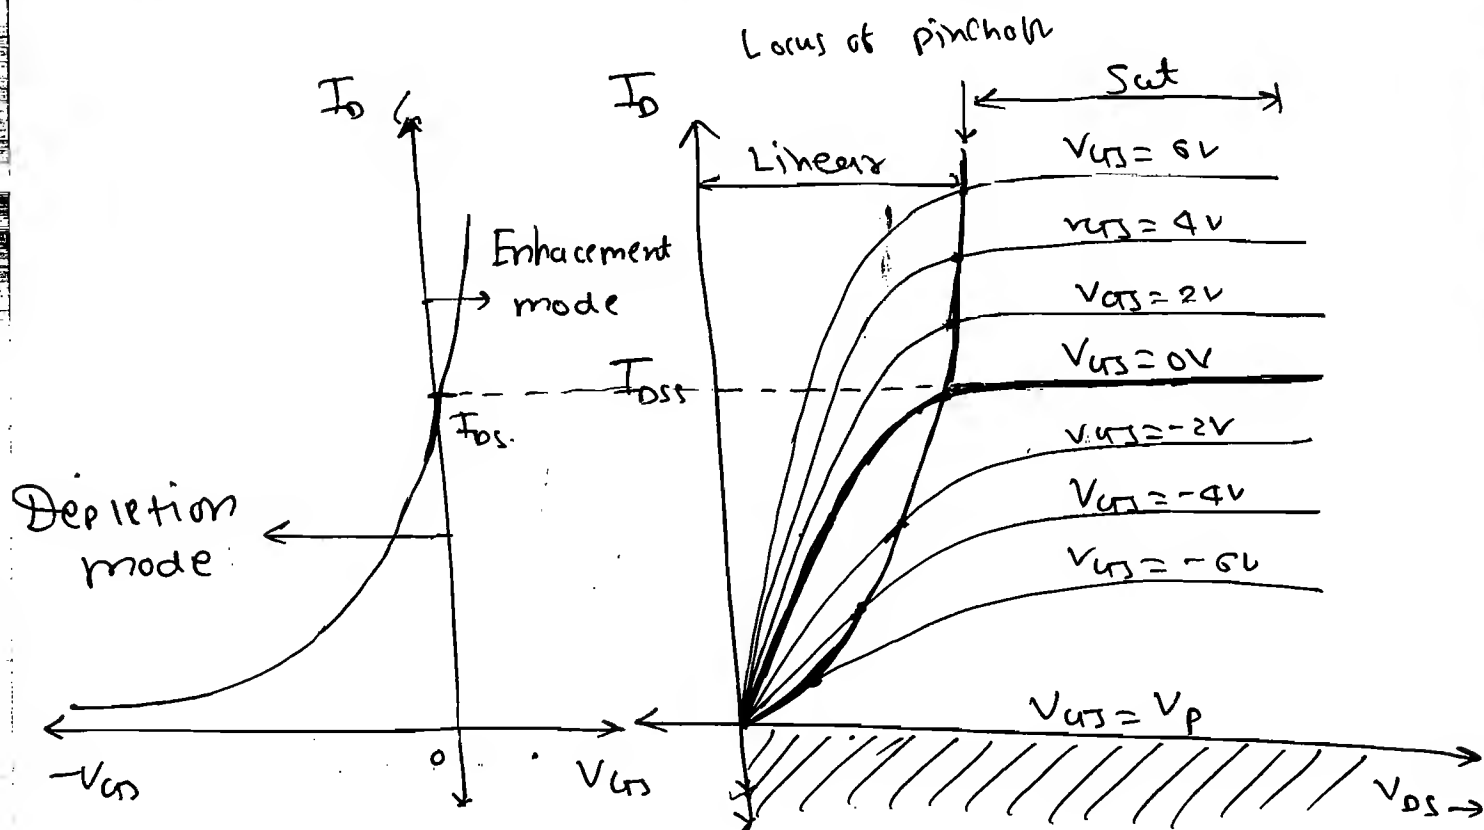 Locus of pinchoff
I_D
I_D
Sat
Linear
V_GS = 6V
V_GS = 4V
V_GS = 2V
V_GS = 0V
V_GS = -2V
V_GS = -4V
V_GS = -6V
V_GS = V_P
Enhacement
mode
I_DSS
I_DS.
Depletion
mode
-V_GS
0
V_GS
V_DS →